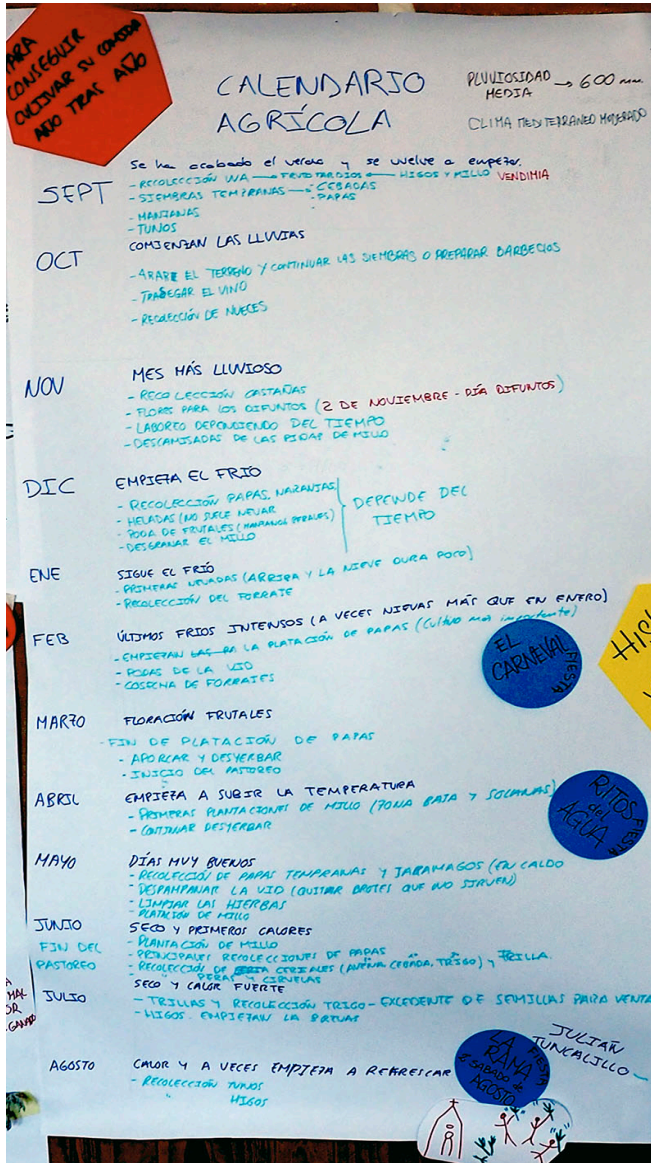 PARA
CONSEGUIR
CULTIVAR SU COMIDA
AÑO TRAS AÑO
CALENDARIO
AGRÍCOLA
PLUVIOSIDAD
MEDIA → 600 mm.
CLIMA MEDITERRANEO MODERADO
Se ha acabado el verano y se vuelve a empezar.
SEPT
- RECOLECCIÓN UVA — FRUTO TARDIOS — HIGOS Y MILLO VENDIMIA
- SIEMBRAS TEMPRANAS — · CEBADAS
· PAPAS
- MANZANAS
- TUNOS
OCT
COMIENZAN LAS LLUVIAS
- ARARE EL TERRENO Y CONTINUAR LAS SIEMBRAS O PREPARAR BARBECIOS
- TRASEGAR EL VINO
- RECOLECCIÓN DE NUECES
NOV
MES MÁS LLUVIOSO
- RECOLECCIÓN CASTAÑAS
- FLORES PARA LOS DIFUNTOS (2 DE NOVIEMBRE - DÍA DIFUNTOS)
- LABOREO DEPENDIENDO DEL TIEMPO
- DESCAMISADAS DE LAS PIÑAS DE MILLO
DIC
EMPIEZA EL FRIO
- RECOLECCIÓN PAPAS, NARANJAS
- HELADAS (NO SUELE NEVAR
- PODA DE FRUTALES (MANZANOS, PERALES)
- DESGRANAR EL MILLO
DEPENDE DEL
TIEMPO
ENE
SIGUE EL FRÍO
- PRIMERAS NEVADAS (ARRIBA Y LA NIEVE DURA POCO)
- RECOLECCIÓN DEL FORRAJE
FEB
ÚLTIMOS FRIOS INTENSOS (A VECES NIEVAS MÁS QUE EN ENERO)
- EMPIEZAN LA PLATACIÓN DE PAPAS (Cultivo más importante)
- PODAS DE LA VID
- COSECHA DE FORRAJES
EL
CARNEVAL
FIESTA
HIS
MARZO
FLORACIÓN FRUTALES
- FIN DE PLATACIÓN DE PAPAS
- APORCAR Y DESYERBAR
- INICIO DEL PASTOREO
ABRIL
EMPIEZA A SUBIR LA TEMPERATURA
- PRIMERAS PLANTACIONES DE MILLO (ZONA BAJA Y SOLANAS)
- CONTINUAR DESYERBAR
RITOS
del
AGUA
FIESTA
MAYO
DÍAS MUY BUENOS
- RECOLECCIÓN DE PAPAS TEMPRANAS Y JARAMAGOS (EN CALDO
- DESPAMPANAR LA VID (QUITAR BROTES QUE NO SIRVEN)
- LIMPIAR LAS HIERBAS
- PLATACIÓN DE MILLO
JUNIO
SECO Y PRIMEROS CALORES
FIN DEL
PASTOREO
- PLANTACIÓN DE MILLO
- PRINCIPALES RECOLECCIONES DE PAPAS
- RECOLECCIÓN DE CEREALES (AVENA, CEBADA, TRIGO) Y TRILLA.
" PERAS Y CIRUELAS
JULIO
SECO Y CALOR FUERTE
- TRILLAS Y RECOLECCIÓN TRIGO - EXCEDENTE DE SEMILLAS PARA VENTA
- HIGOS. EMPIEZAN LA BREVAS
A
MAL
OR
GANADO
AGOSTO
CALOR Y A VECES EMPIEZA A REFRESCAR
- RECOLECCIÓN TUNOS
" HIGOS
LA
RAMA
SABADO de
AGOSTO
FIESTA
JULIAN
TUNCALILLO